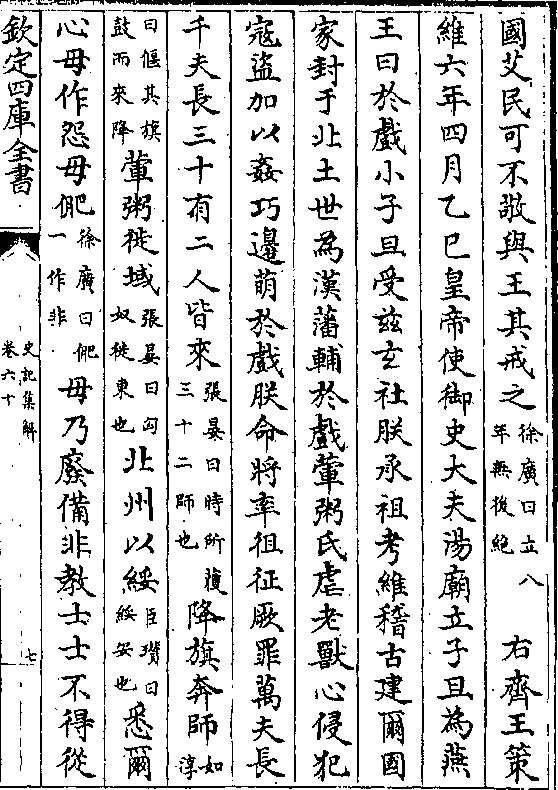 國艾民可不敬與王其戒之徐廣曰立八年無後絶 右齊王策
維六年四月乙巳皇帝使御史大夫湯廟立子旦為燕
王曰於戲小子旦受兹玄社朕承祖考維稽古建爾國
家封于北土世為漢藩輔於戲葷粥氏虐老獸心侵犯
寇盜加以姦巧邊萌於戲朕命將率徂征厥罪萬夫長
千夫長三十有二人皆來張晏曰時所獲三十二師也降旗奔師如淳
曰偃其旗鼓而來降葷粥徙域張晏曰匈奴徙東也北州以綏臣瓚曰綏安也悉爾
心毋作怨毋俷徐廣曰俷一作非毋乃廢備非教士士不得從
欽定四庫全書
史記集解
卷六十
七